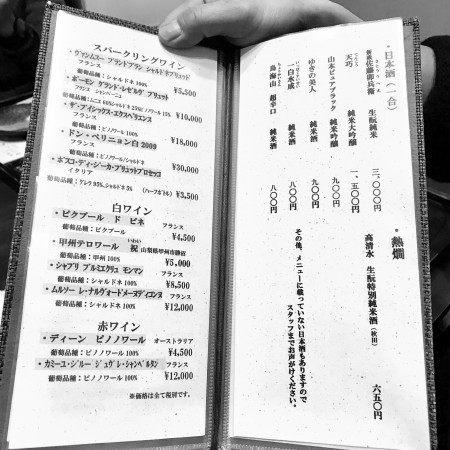 スパークリングワイン
・ヴァンムスー ブランドブラン シャルドネブリュット
フランス
葡萄品種：シャルドネ 100% ¥5,500
・ボーモン グランド・レゼルヴ ブリュット
フランス シャンパーニュ ¥10,000
葡萄品種：ムニエ 60%シャルドネ 25%ピノノワール 15%
・ザ・アイシックス・エクスペリエンス
フランス
葡萄品種：ピノノワール 100% ¥18,000
・ドン・ペリニョン白 2009
フランス
葡萄品種：ピノノワール/シャルドネ ¥30,000
・ボスコ・ディ・ジーカ・ブリュットプロセッコ
イタリア
葡萄品種：ゲレラ 95%、シャルドネ 5% (ハーフボトル) ¥3,500
白ワイン
・ピクプール ド ピネ フランス
葡萄品種：ピクプール ¥4,500
・甲州テロワール 祝 いわい 山梨県甲州市勝沼
葡萄品種：甲州 100% ¥5,000
・シャブリ プルミエクリュ モンマン フランス
葡萄品種：シャルドネ 100% ¥8,500
・ムルソー レ・ナルヴォードメーヌディコンヌ フランス
葡萄品種：シャルドネ 100% ¥12,000
赤ワイン
・ディーン ピノノワール オーストラリア
葡萄品種：ピノノワール 100% ¥4,500
・カミーユ・ジルー ジュヴレ・シャンベルタン フランス
葡萄品種：ピノノワール 100% ¥12,000
※価格は全て税別です。
・日本酒（一合）
新政佐藤卯兵衛 生酛純米 三、〇〇〇円
天巧 純米大吟醸 一、五〇〇円
山本ピュアブラック 純米吟醸 九〇〇円
ゆきの美人 純米酒 九〇〇円
一白水成 純米酒 八〇〇円
鳥海山 超辛口 純米酒 八〇〇円
・熱燗
高清水 生酛特別純米酒（秋田） 六五〇円
その他、メニューに載っていない日本酒もありますので
スタッフまでお声がけください。